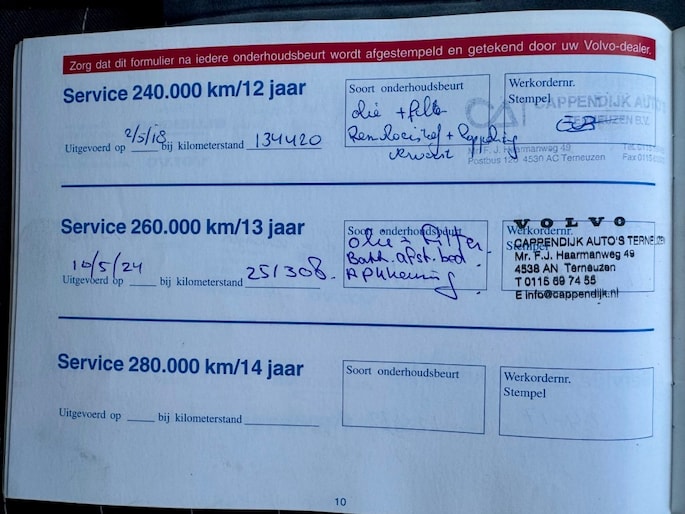 Zorg dat dit formulier na iedere onderhoudsbeurt wordt afgestempeld en getekend door uw Volvo-dealer.
Service 240.000 km/12 jaar
Uitgevoerd op 2/5/18 bij kilometerstand 134420
Soort onderhoudsbeurt
olie + filter
Remvloeistof + koppeling
ververst
Werkordernr.
Stempel
CA CAPPENDIJK AUTO'S
TERNEUZEN B.V.
Mr. F.J. Haarmanweg 49
Postbus 126 4530 AC Terneuzen
Fax 0115
Service 260.000 km/13 jaar
Uitgevoerd op 10/5/24 bij kilometerstand 251308.
Soort onderhoudsbeurt
olie + Filter.
Batt. afst. bed.
APK keuring
Werkordernr.
Stempel
VOLVO
CAPPENDIJK AUTO'S TERNEUZEN
Mr. F.J. Haarmanweg 49
4538 AN Terneuzen
T 0115 69 74 55
E info@cappendijk.nl
Service 280.000 km/14 jaar
Uitgevoerd op bij kilometerstand
Soort onderhoudsbeurt
Werkordernr.
Stempel
10